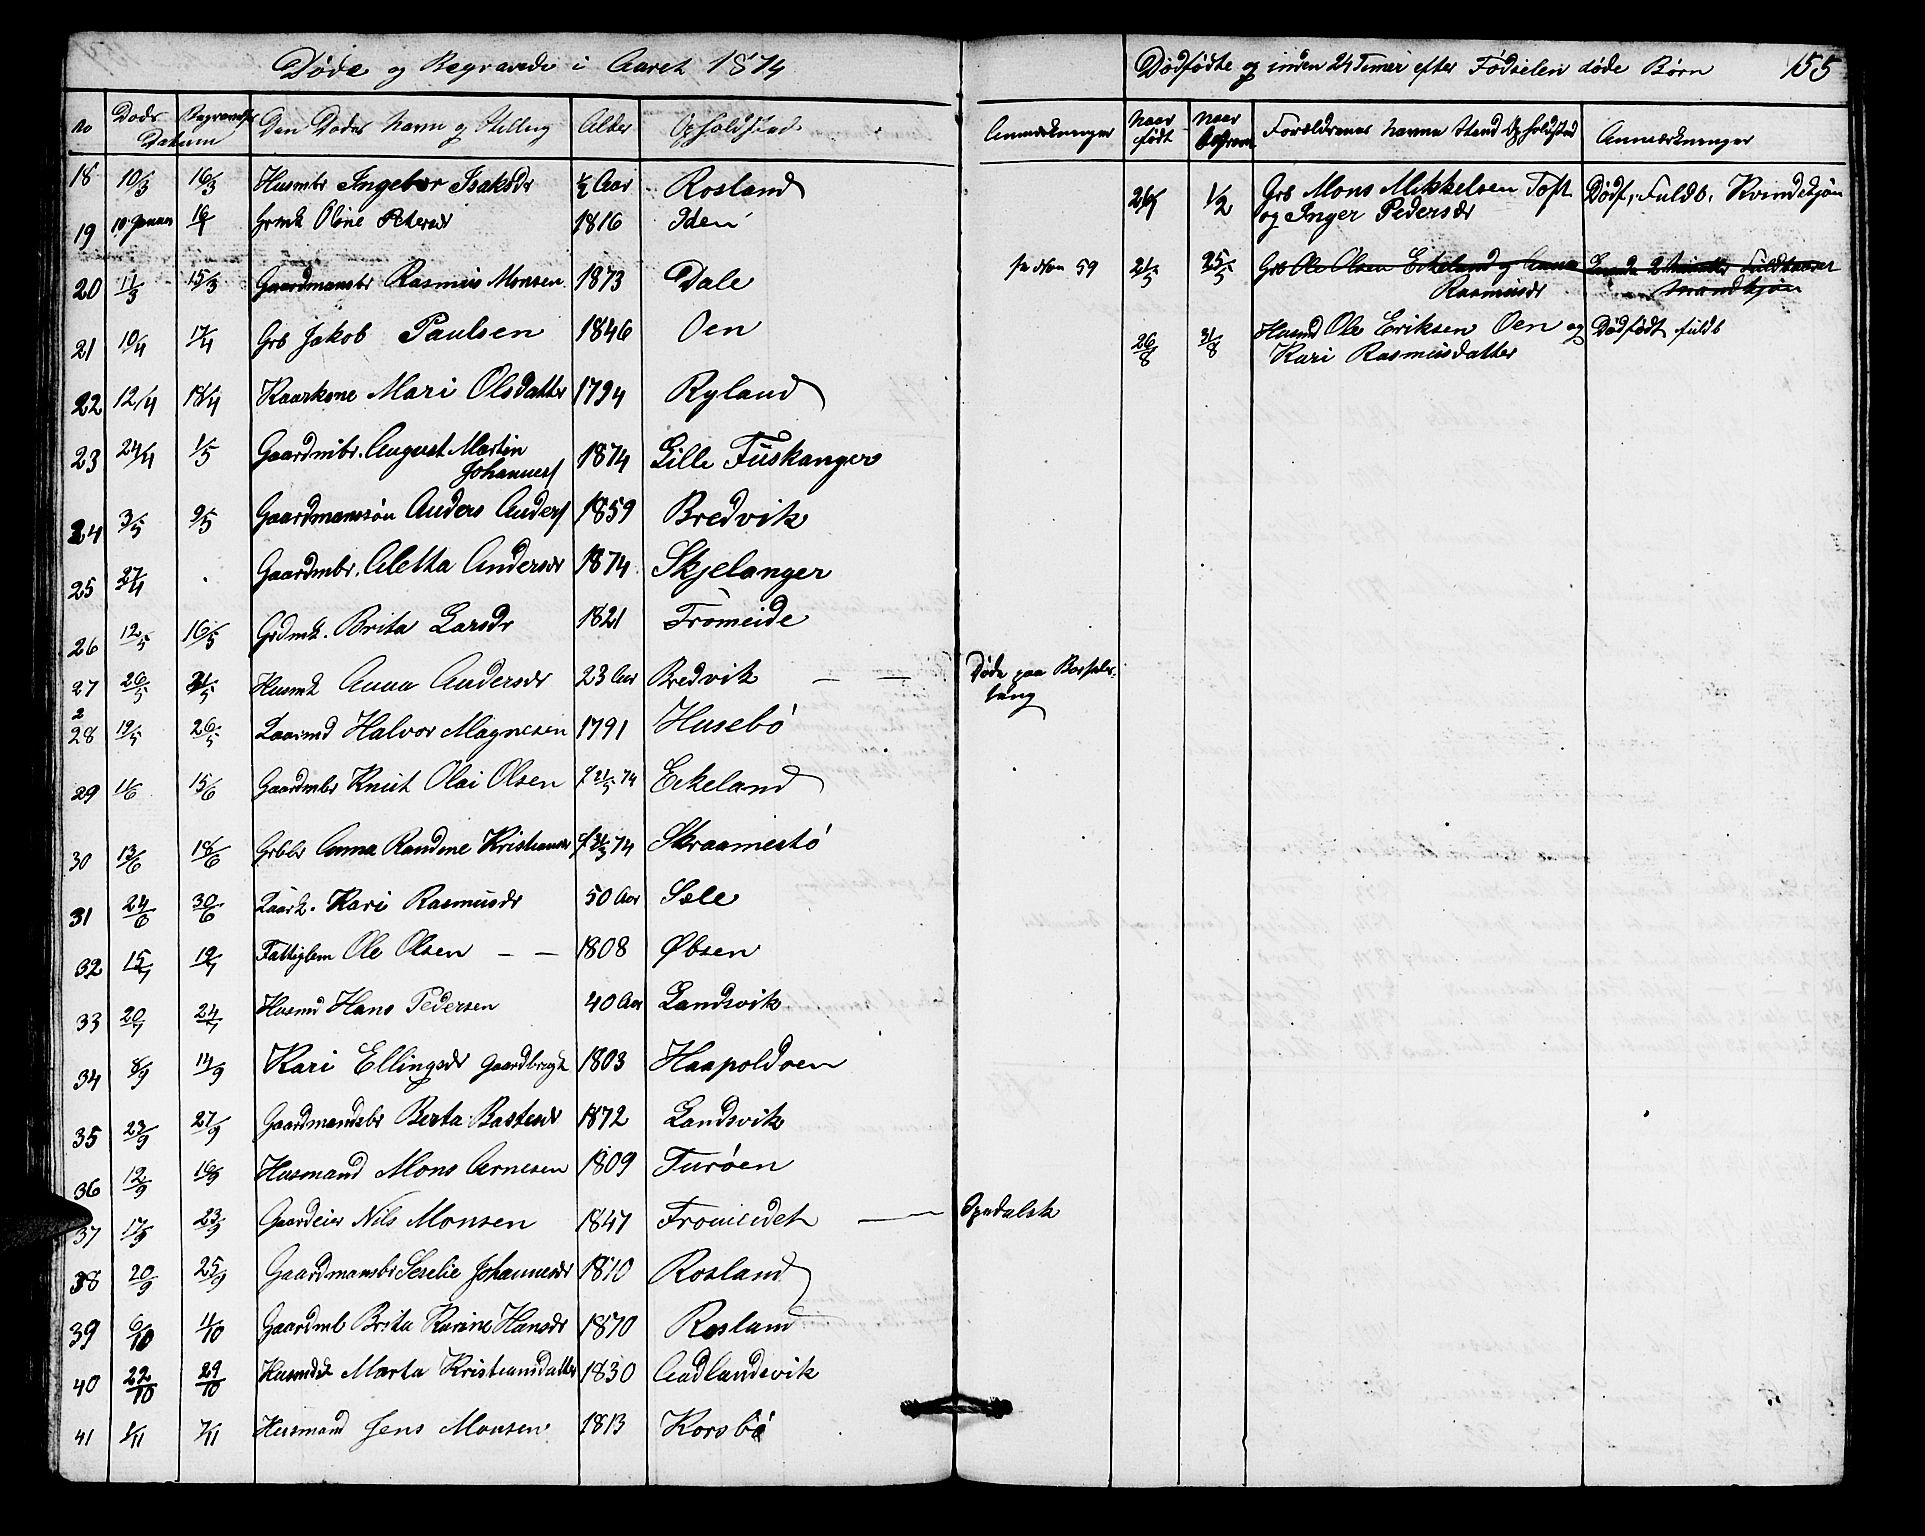 Døde og Begravede i Aaret 1874
No Døds Datum Begravelses Den Dødes Navn og Stilling Alder Opholdsted
18 10/3 16/3 Husmbr Ingebor Isaksdr ½ Aar Rosland
19 10 Januar 16/1 Grmk Oline Petersdr 1816 Iden
20 11/3 15/3 Gaardmansbr Rasmus Monsen 1873 Dale
21 10/4 17/4 Grb Jakob Paulsen 1846 Oen
22 12/4 18/4 Kaarkone Mari Olsdatter 1794 Ryland
23 24/4 1/5 Gaardmbr. August Martin
Johannes 1874 Lille Fuskanger
24 3/5 9/5 Gaardmanssøn Anders Anders 1859 Bredvik
25 27/4 Gaardmbr. Aletta Andersdr 1874 Skjelanger
26 12/5 16/5 Grdmk. Brita Larsdr 1821 Fromeide
27 26/5 31/5 Husmk Anna Andersdr 23 Aar Bredvik — — Døde paa Barsels-
seng
28 19/5 26/5 Kaarmd Halvor Magnesen 1791 Husebø
29 11/6 15/6 Gaardmbr Knut Olai Olsen f 21/5 74 Eikeland
30 13/6 18/6 Grbbr Anna Randine Kristiansdr f 31/3 74 Skraamestø
31 24/6 30/6 Kaark. Kari Rasmusdr 50 Aar Sele
32 15/7 19/7 Fattiglem Ole Olsen — — 1808 Øbsen
33 20/7 24/7 Husmd Hans Pedersen 40 Aar Landsvik
34 8/9 14/9 Kari Ellingsdr Gaardbrugk 1803 Haapoldoen
35 23/9 27/9 Gaardmandsbr Berta Bastesdr 1872 Landsvik
36 12/9 16/9 Husmand Mons Arnesen 1809 Turøen
37 17/9 23/9 Gaardeier Nils Monsen 1847 Fromeidet — Spedalsk
38 20/9 25/9 Gaardmansbr Serelie Johannesdr 1870 Rosland
39 6/10 11/10 Gaardmb Brita Karine Hansdr 1870 Rosland
40 22/10 29/10 Husmdsk Marta Kristiansdatter 1830 Aadlandsvik
41 1/11 7/11 Husmand Jens Monsen 1813 Korsbø
Dødfødte og inden 24 Timer efter Fødselen døde Børn 155
Anmærkninger Naar født Naar Begravn Forældrenes Navne Stand Opholdsted Anmærkninger
26/1 1/2 Grb Mons Mikkelsen Toft Dødf, Fuldb, Kvindekjøn
og Inger Pedersdr
59 21/5 25/5 Grb Ole Olsen Eikeland og Anna Fuldbaaret
Rasmusdr Mandkjøn
26/8 31/8 Husmd Ole Eriksen Oen og Dødfødt fuldb
Kari Rasmusdatter